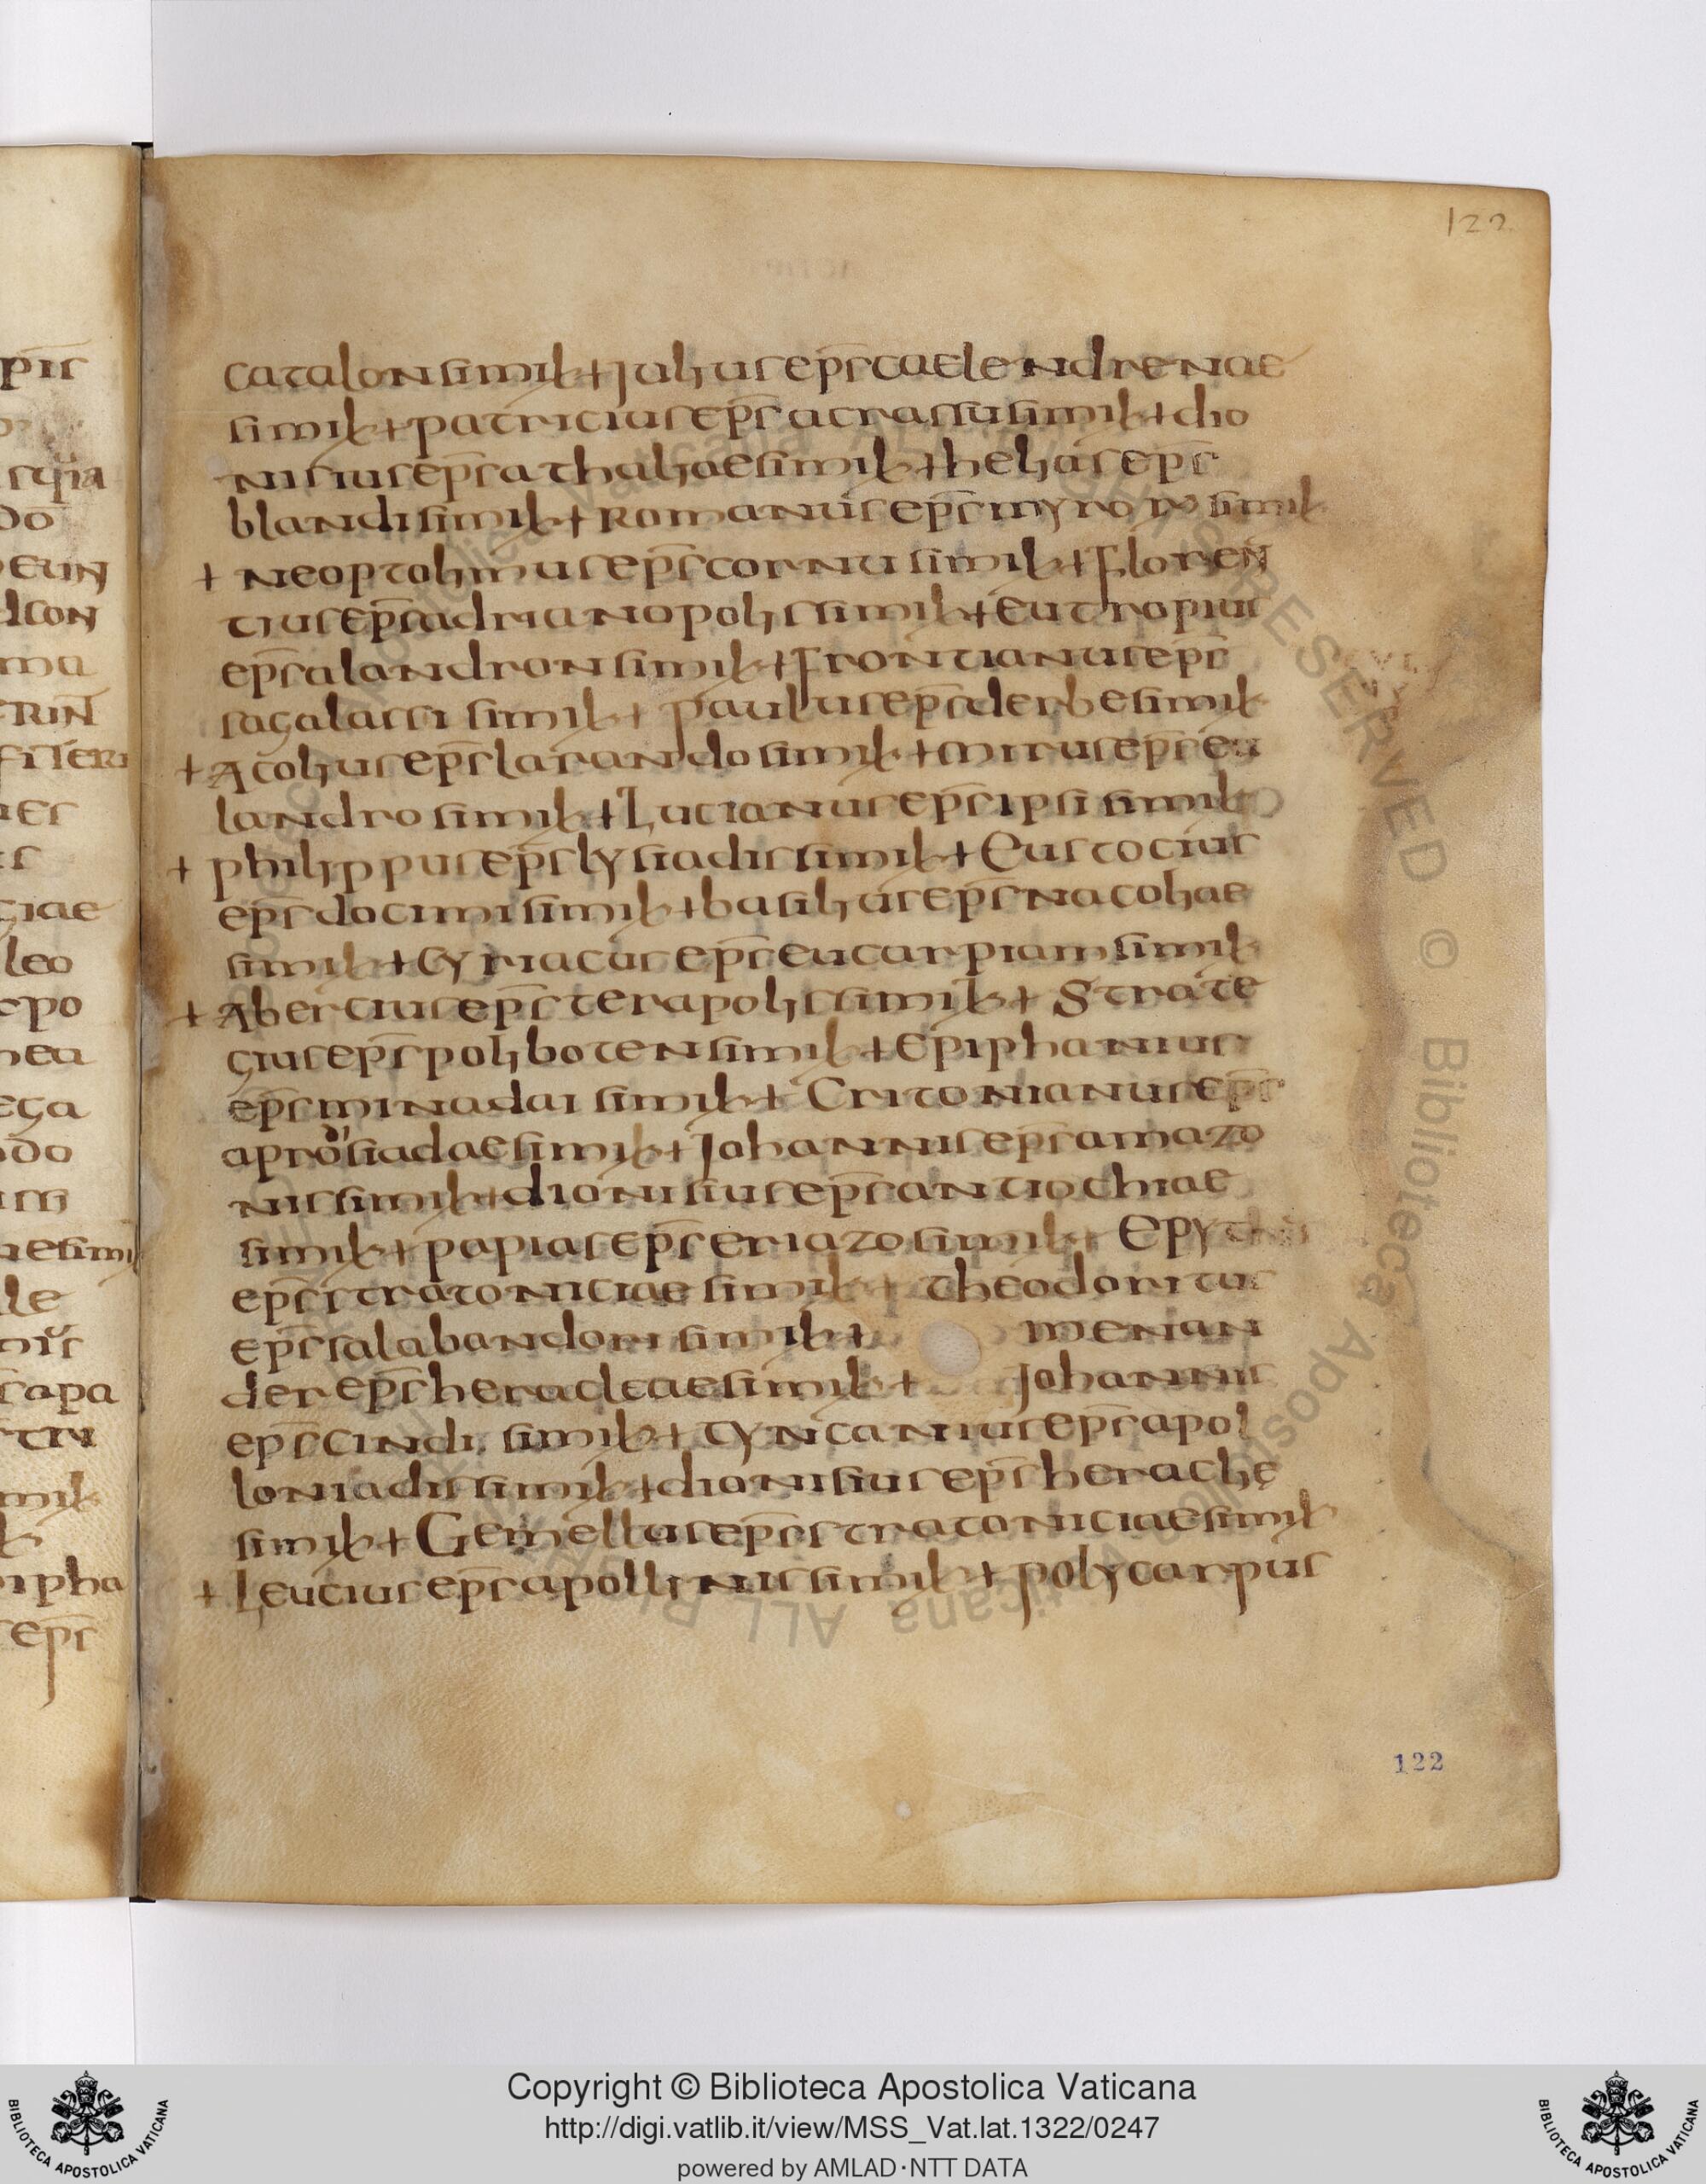 122
catalon simil + Iulius eps caelendrenae
simil + patricius eps acrassu simil + dio
nisius eps athaliae simil + helias eps
blandi simil + Romanus eps myro simil
+ neoptolimus eps cornu simil + Floren
tius eps adrianopolis simil + eutropius
eps alandron simil + Frontianus eps
sagalassi simil + paulus eps derbe simil
+ Acolius eps larando simil + mirus eps eu
landro simil + Lucianus eps ipsi simil
+ philippus eps lysiadis simil + Eustocius
eps docimi simil + basilius eps nacoliae
simil + Cyriacus eps eucarpiam simil
+ Abercius eps terapolis simil + Strate
gius eps polyboten simil + Epiphanius
eps minadai simil + Critonianus eps
aprodisiadae simil + Johannis eps amazo
nis simil + dionisius eps antiochiae
simil + papias eps eriazo simil +
eps stratoniciae simil + theodoritus
eps salabandon simil + menian
der eps heracleae simil + Johannis
eps cindi simil + Tyncanius eps apol
loniadis simil + dionisius eps heraclię
simil + Gemellus eps stratoniciae simil
+ Leucius eps apollinis simil + polycarpus
122
Copyright © Biblioteca Apostolica Vaticana
http://digi.vatlib.it/view/MSS_Vat.lat.1322/0247
powered by AMLAD·NTT DATA
BIBLIOTECA APOSTOLICA VATICANA
BIBLIOTECA APOSTOLICA VATICANA